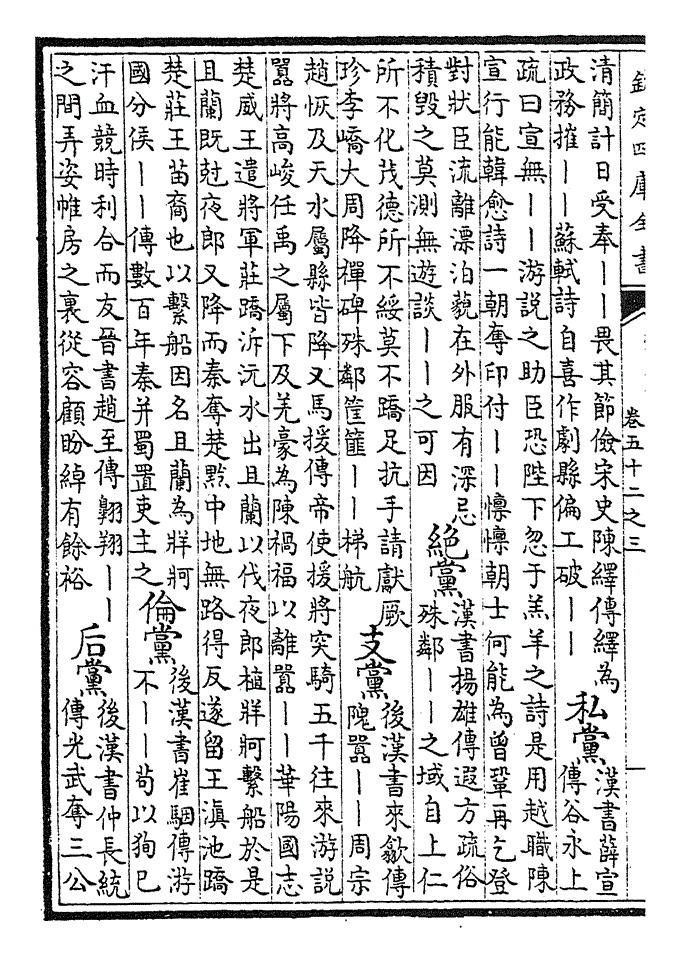 欽定四庫全書
卷五十二之三
清簡計日受奉——畏其節儉宋史陳繹傳繹為
政務摧——蘇軾詩自喜作劇縣偏工破——
私黨
漢書薛宣
傳谷永上
疏曰宣無——游說之助臣恐陛下忽于羔羊之詩是用越職陳
宣行能韓愈詩一朝奪印付——懍懍朝士何能為曾鞏再乞登
對狀臣流離漂泊藐在外服有深忌
積毀之莫測無遊談——之可因
絕黨
漢書揚雄傳遐方疏俗
殊鄰——之域自上仁
所不化茂德所不綏莫不蹻足抗手請獻厥
珍李嶠大周降禪碑殊鄰筐篚——梯航
支黨
後漢書來歙傳
隗囂——周宗
趙恢及天水屬縣皆降又馬援傳帝使援將突騎五千往來游說
囂將高峻任禹之屬下及羌豪為陳禍福以離囂——華陽國志
楚威王遣將軍莊蹻泝沅水出且蘭以伐夜郎植牂牁繫船於是
且蘭既尅夜郎又降而秦奪楚黔中地無路得反遂留王滇池蹻
楚莊王苗裔也以繫船因名且蘭為牂牁
國分侯——傳數百年秦并蜀置吏主之
倫黨
後漢書崔駰傳游
不——苟以狥己
汗血競時利合而友晉書趙至傳翺翔——
之間弄姿帷房之裏從容顧盼綽有餘裕
后黨
後漢書仲長統
傳光武奪三公